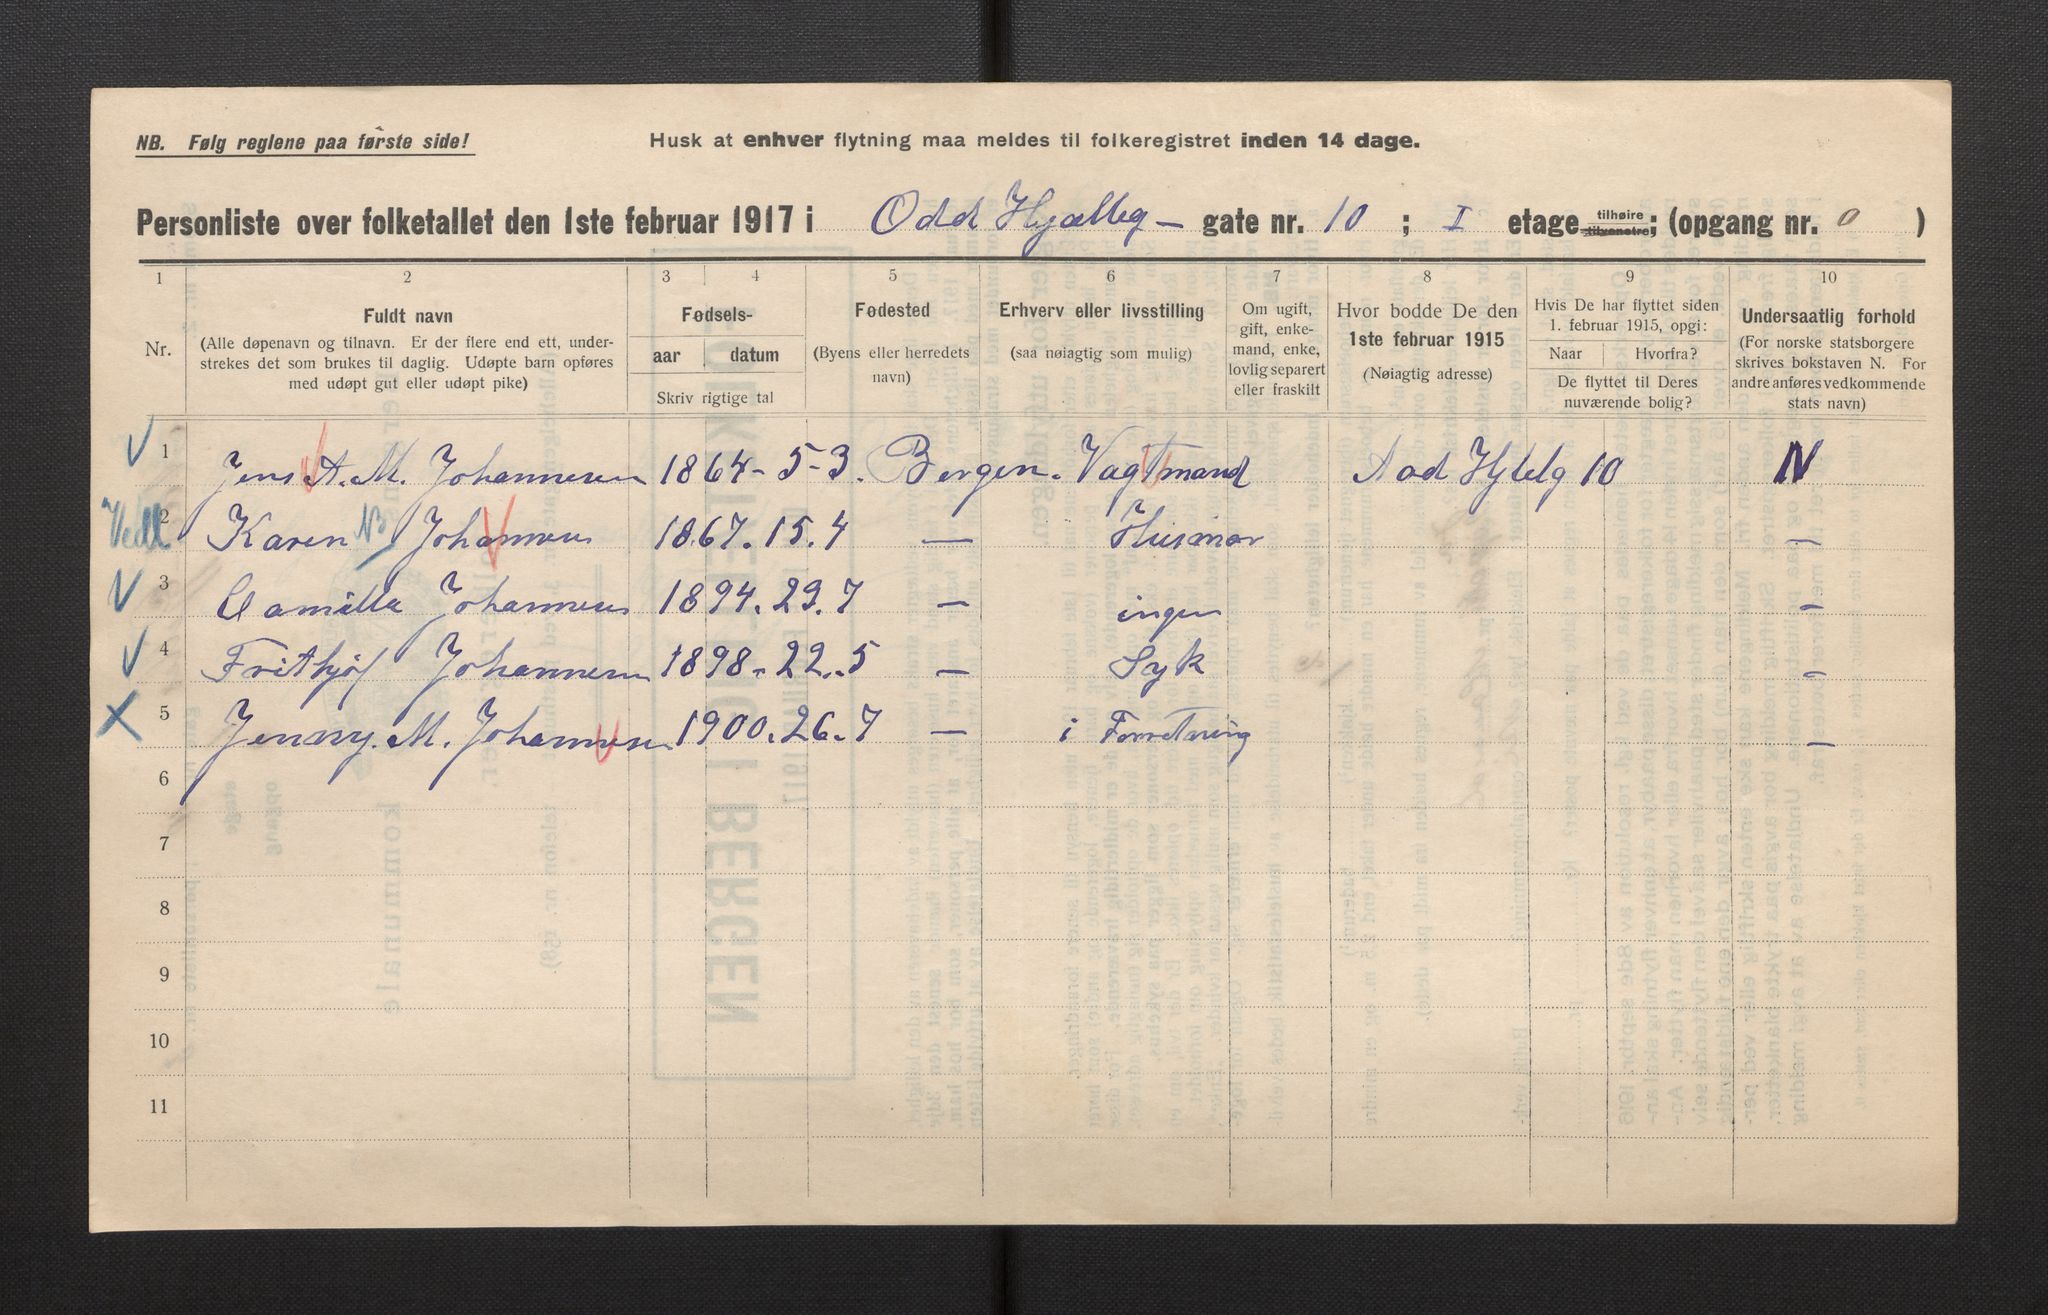 NB. Følg reglene paa første side!
Husk at enhver flytning maa meldes til folkeregistret inden 14 dage.
Personliste over folketallet den 1ste februar 1917 i Odd Hjælleg — gate nr. 10 ; I etage tilhøire tilvenstre; (opgang nr. 0 )
1 2 3 4 5 6 7 8 9 10
Nr.
Fuldt navn
(Alle døpenavn og tilnavn. Er der flere end ett, under-
strekes det som brukes til daglig. Udøpte barn opføres
med udøpt gut eller udøpt pike)
Fødsels-
aar datum
Skriv rigtige tal
Fødested
(Byens eller herredets
navn)
Erhverv eller livsstilling
(saa nøiagtig som mulig)
Om ugift,
gift, enke-
mand, enke,
lovlig separert
eller fraskilt
Hvor bodde De den
1ste februar 1915
(Nøiagtig adresse)
Hvis De har flyttet siden
1. februar 1915, opgi:
Naar Hvorfra?
De flyttet til Deres
nuværende bolig?
Undersaatlig forhold
(For norske statsborgere
skrives bokstaven N. For
andre anføres vedkommende
stats navn)
1 Jens A. M. Johannesen 1864 - 5-3. Bergen. Vagtmand Aad Hjlelg 10 N
Vedl 2 Karen Johannesen 1867. 15. 4 — Husmor —
3 Camilla Johannesen 1894. 29. 7 — ingen —
4 Frithjof Johannesen 1898 - 22. 5 — Syk —
5 Jenny. M. Johannesen 1900. 26. 7 — i Forretning —
6
7
8
9
10
11